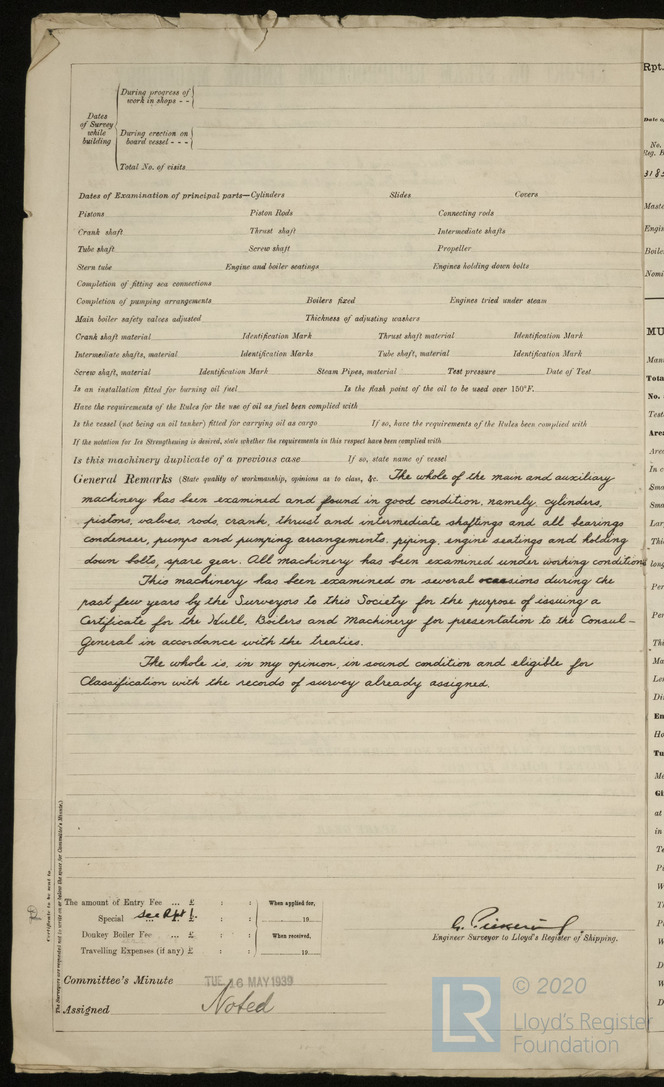 During progress of
work in shops - -
Dates
of Survey
while
building
During erection on
board vessel - - -
Total No. of visits
Dates of Examination of principal parts—Cylinders Slides Covers
Pistons Piston Rods Connecting rods
Crank shaft Thrust shaft Intermediate shafts
Tube shaft Screw shaft Propeller
Stern tube Engine and boiler seatings Engines holding down bolts
Completion of fitting sea connections
Completion of pumping arrangements Boilers fixed Engines tried under steam
Main boiler safety valves adjusted Thickness of adjusting washers
Crank shaft material Identification Mark Thrust shaft material Identification Mark
Intermediate shafts, material Identification Marks Tube shaft, material Identification Mark
Screw shaft, material Identification Mark Steam Pipes, material Test pressure Date of Test
Is an installation fitted for burning oil fuel Is the flash point of the oil to be used over 150°F.
Have the requirements of the Rules for the use of oil as fuel been complied with
Is the vessel (not being an oil tanker) fitted for carrying oil as cargo If so, have the requirements of the Rules been complied with
If the notation for Ice Strengthening is desired, state whether the requirements in this respect have been complied with
Is this machinery duplicate of a previous case If so, state name of vessel
General Remarks (State quality of workmanship, opinions as to class, &c. The whole of the main and auxiliary
machinery has been examined and found in good condition, namely, cylinders,
pistons, valves, rods, crank, thrust and intermediate shaftings and all bearings
condenser, pumps and pumping arrangements. piping, engine seatings and holding
down bolts, spare gear. All machinery has been examined under working conditions
This machinery has been examined on several occasions during the
past few years by the Surveyors to this Society for the purpose of issuing a
Certificate for the Hull, Boilers and Machinery for presentation to the Consul-
General in accordance with the treaties.
The whole is, in my opinion, in sound condition and eligible for
Classification with the records of survey already assigned.
The amount of Entry Fee ... £ : : When applied for,
Special see Rpt 1. £ : : 19
Donkey Boiler Fee ... £ : : When received,
Travelling Expenses (if any) £ : : 19
G. Pickering
Engineer Surveyor to Lloyd's Register of Shipping.
Committee's Minute TUE 16 MAY 1939
Assigned Noted
Certificate to be sent to
The Surveyors are requested not to write on or below the space for Committee's Minute.
Rpt.
Date of
No.
Reg. B
Maste
Engi
Boile
Nomi
MU
Man
Tota
No.
Test
Area
Area
In c
Smo
Smo
Lar
Thi
long
Per
Per
Thi
Ma
Les
Di
En
Ho
Tu
Me
Gi
at
in
Te
Pi
W
T
P
W
D
W
D
LR
© 2020
Lloyd's Register
Foundation